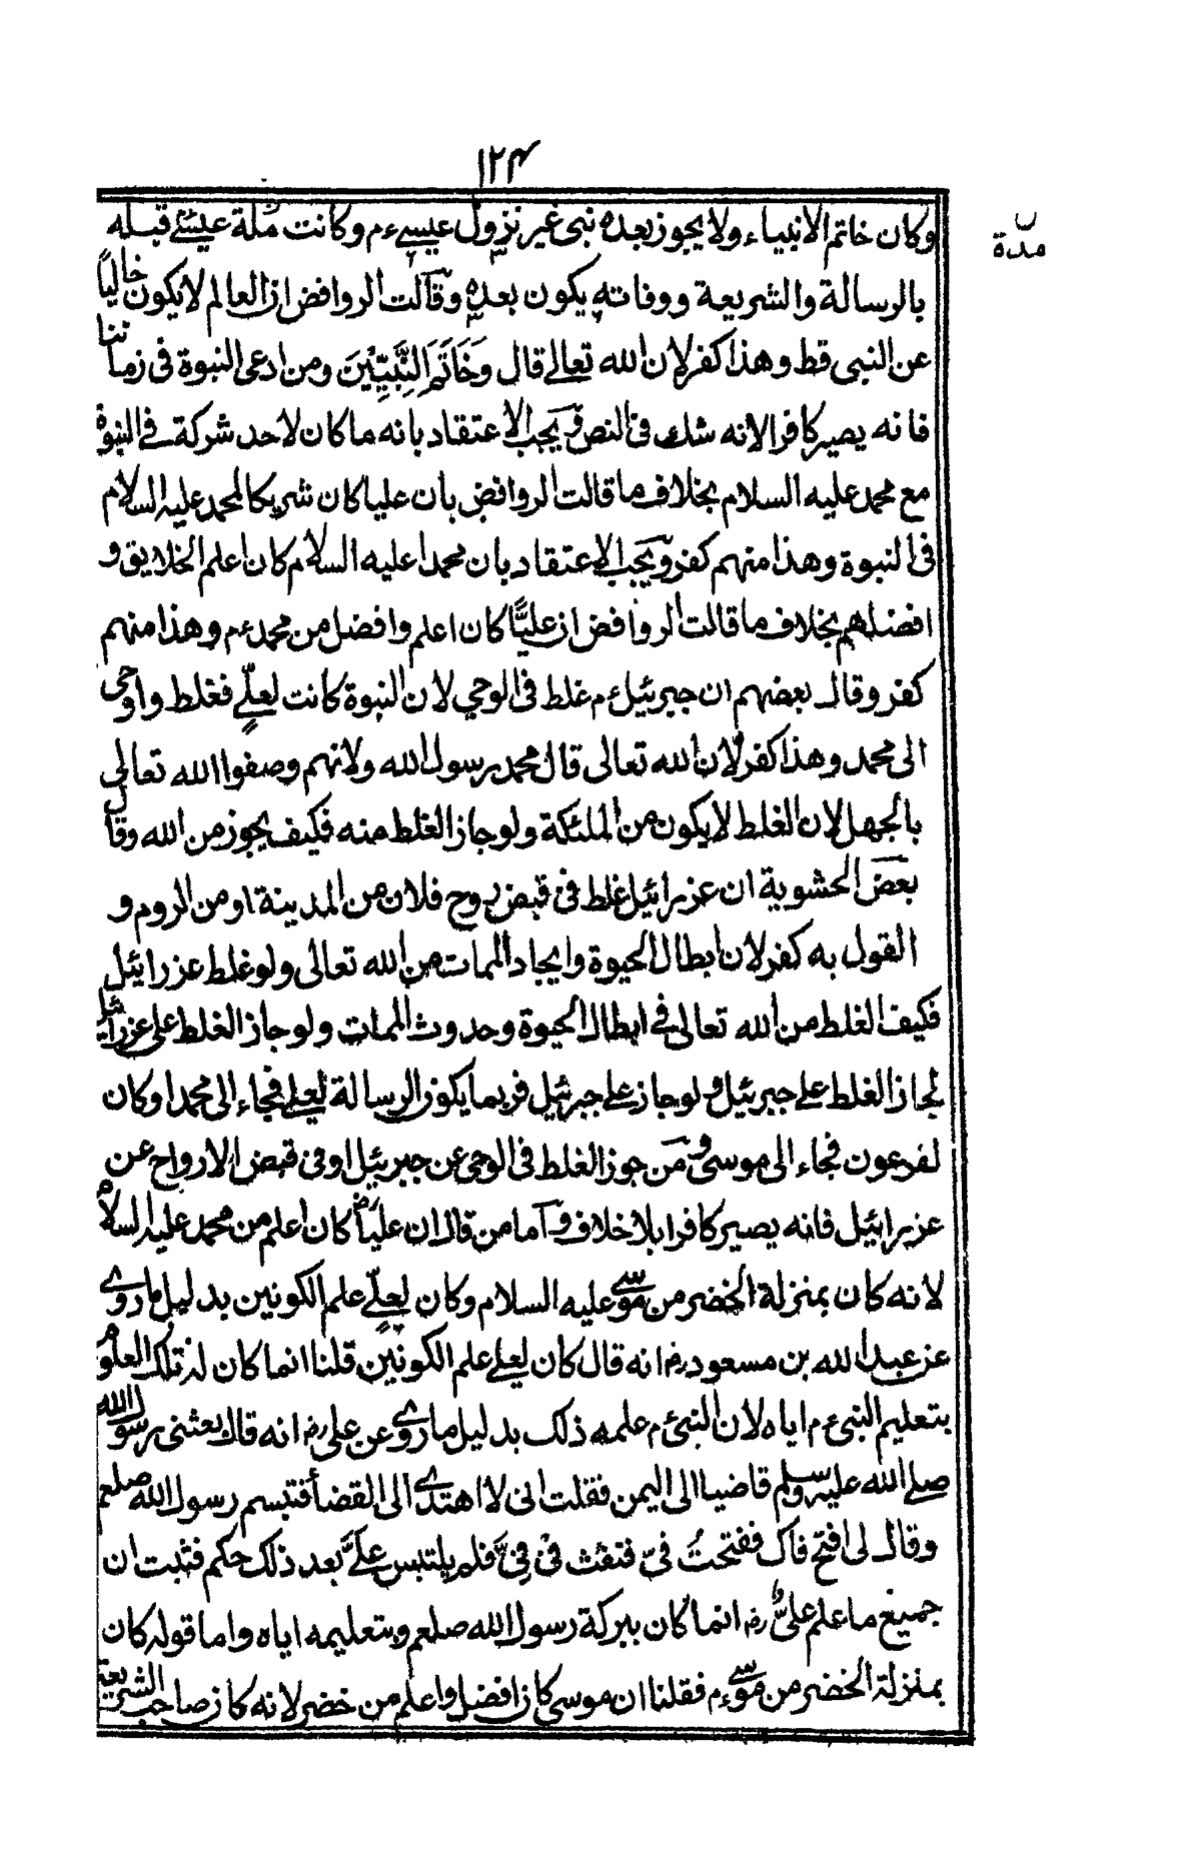 ١٢٤
ن
مدة
وكان خاتم الانبياء ولا يجوز بعده نبى غير نزول عيسى ءم وكانت مُلة عيسٰے قبله
بالرسالة والشريعة ووفاته يكون بعده وقالت الروافض ان العالم لا يكون خاليًا
عن النبى قط وهذا كفر لان الله تعالے قال وَخَاتَمَ النَّبِيِّيْنَ ومن ادعى النبوة فى زماننا
فانه يصير كافرا لانه شك فى النص ويجب الاعتقاد بانه ما كان لاحد شركة فے النبوة
مع محمد عليه السلام بخلاف ما قالت الروافض بان عليا كان شريكا لمحمد عليه السلام
فى النبوة وهذا منهم كفر ويجب الاعتقاد بان محمدا عليه السلام كان اعلم الخلايق و
افضلهم بخلاف ما قالت الروافض ان عليًّا كان اعلم وافضل من محمد ءم وهذا منهم
كفر وقال بعضهم ان جبرئيل ءم غلط فى الوحي لان النبوة كانت لعلىّ فغلط واوحى
الى محمد وهذا كفر لان الله تعالى قال محمد رسول الله ولانهم وصفوا الله تعالى
بالجهل لان الغلط لا يكون من الملئكة ولو جاز الغلط منه فكيف يجوز من الله وقال
بعض الحشوية ان عزرائيل غلط فى قبض روح فلان من المدينة او من الروم و
القول به كفر لان ابطال الحيوة وايجاد الممات من الله تعالى ولو غلط عزرائيل
فكيف الغلط من الله تعالى فے ابطال الحيوة وحدوث الممات ولو جاز الغلط على عزرائيل
لجاز الغلط علے جبرئيل ولو جاز علے جبرئيل فربما يكون الرسالة لعلے فجاء الى محمد او كان
لفرعون فجاء الى موسى ومن جوز الغلط فى الوحى عن جبرئيل او فى قبض الارواح عن
عزرائيل فانه يصير كافرا بلا خلاف واما من قال ان عليا رض كان اعلم من محمد عليه السلام
لانه كان بمنزلة الخضر من موسٰے عليه السلام وكان لعلىّ علم الكونين بدليل ما روے
عن عبد الله بن مسعود رض انه قال كان لعلے علم الكونين قلنا انما كان له تلك العلوم
بتعليم النبى ءم اياه لان النبى ءم علمه ذلك بدليل ما روے عن على رض انه قال بعثنى رسول الله
صلے الله عليه وسلم قاضيا الى اليمن فقلت انى لا اهتدے الى القضاء فتبسم رسول الله صلعم
وقال لى افتح فاك ففتحتُ فىّ فتفث فى فِىَّ فلم يلتبس علىَّ بعد ذلك حكم فثبت ان
جميع ما علم علىٌّ رض انما كان ببركة رسول الله صلعم وبتعليمه اياه واما قوله كان
بمنزلة الخضر من موسٰے ءم فقلنا ان موسى كان افضل واعلم من خضر لانه كان صاحب الشريعة